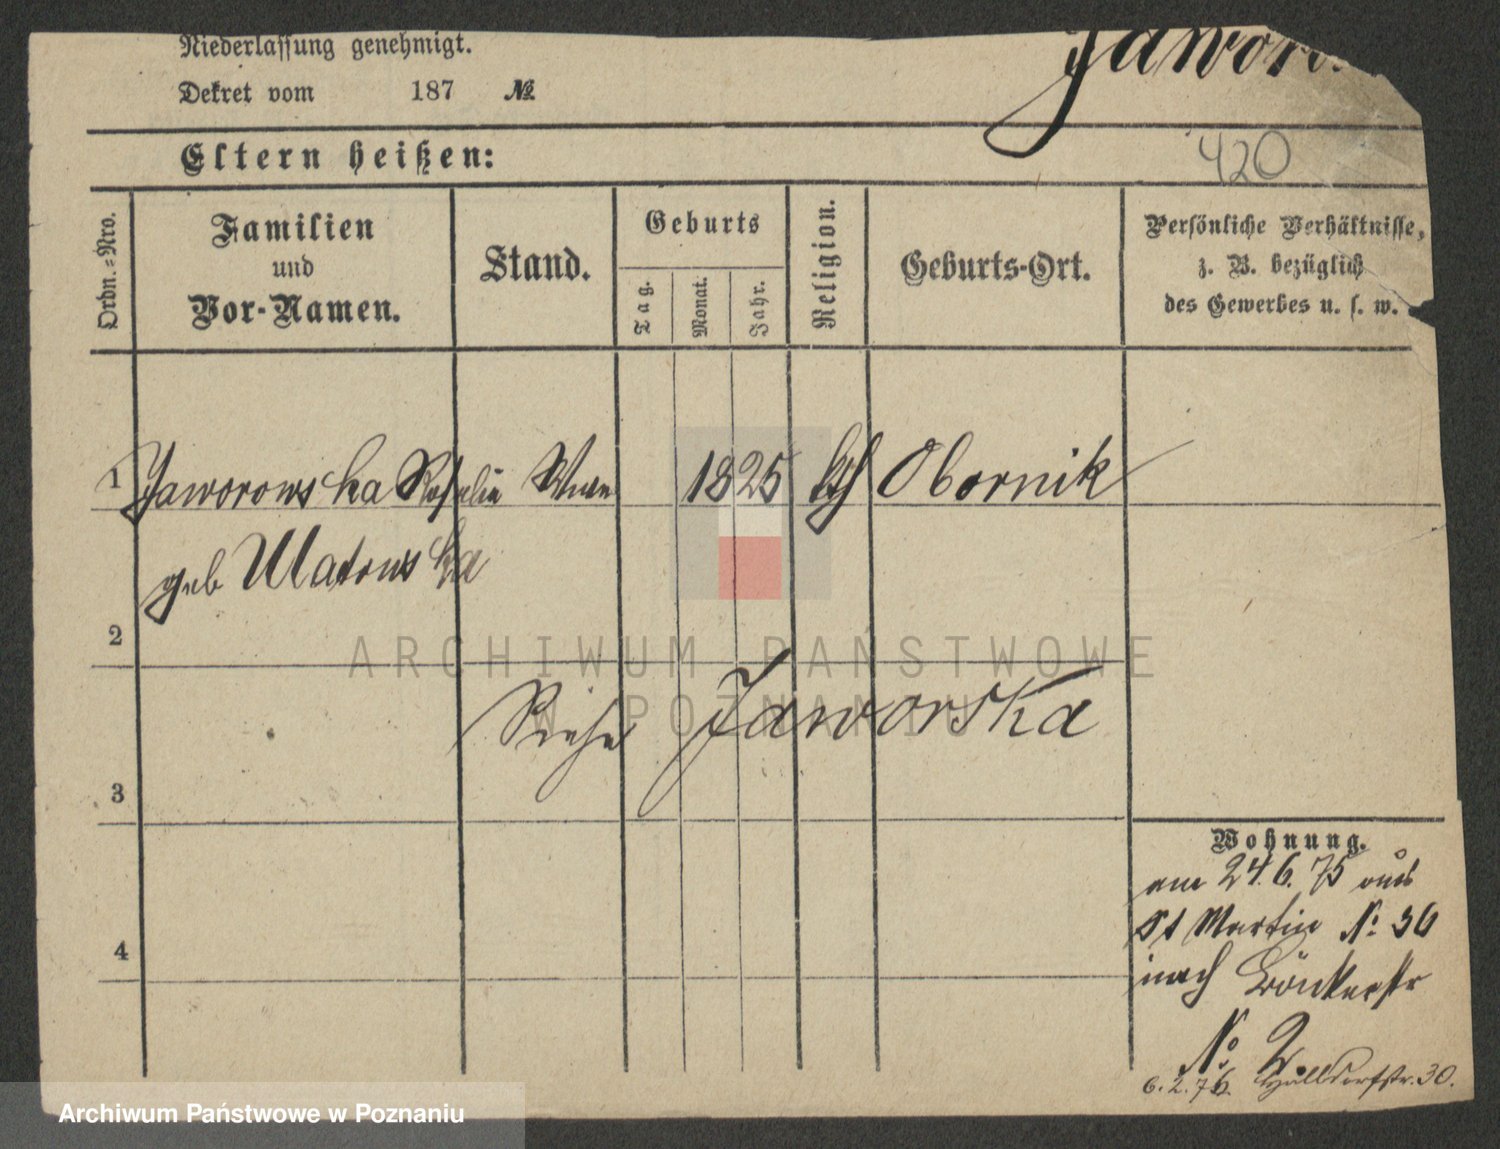 Niederlassung genehmigt.
Jawor
Dekret vom 187 №
Eltern heißen:
420
Ordn.=Nro.
Familien
und
Vor-Namen.
Stand.
Geburts
Tag.
Monat.
Jahr.
Religion.
Geburts-Ort.
Persönliche Verhältnisse,
z. B. bezüglich
des Gewerbes u. s. w.
1 Jaworowska Rosalie 1825 kth Obornik
geb
2
ARCHIWUM PAŃSTWOWE
W POZNANIU
Siehe Jaworska
3
Wohnung.
am 24.6.75 aus
St Martin №: 36
4
nach
No 2.
6.2.76. 30.
Archiwum Państwowe w Poznaniu